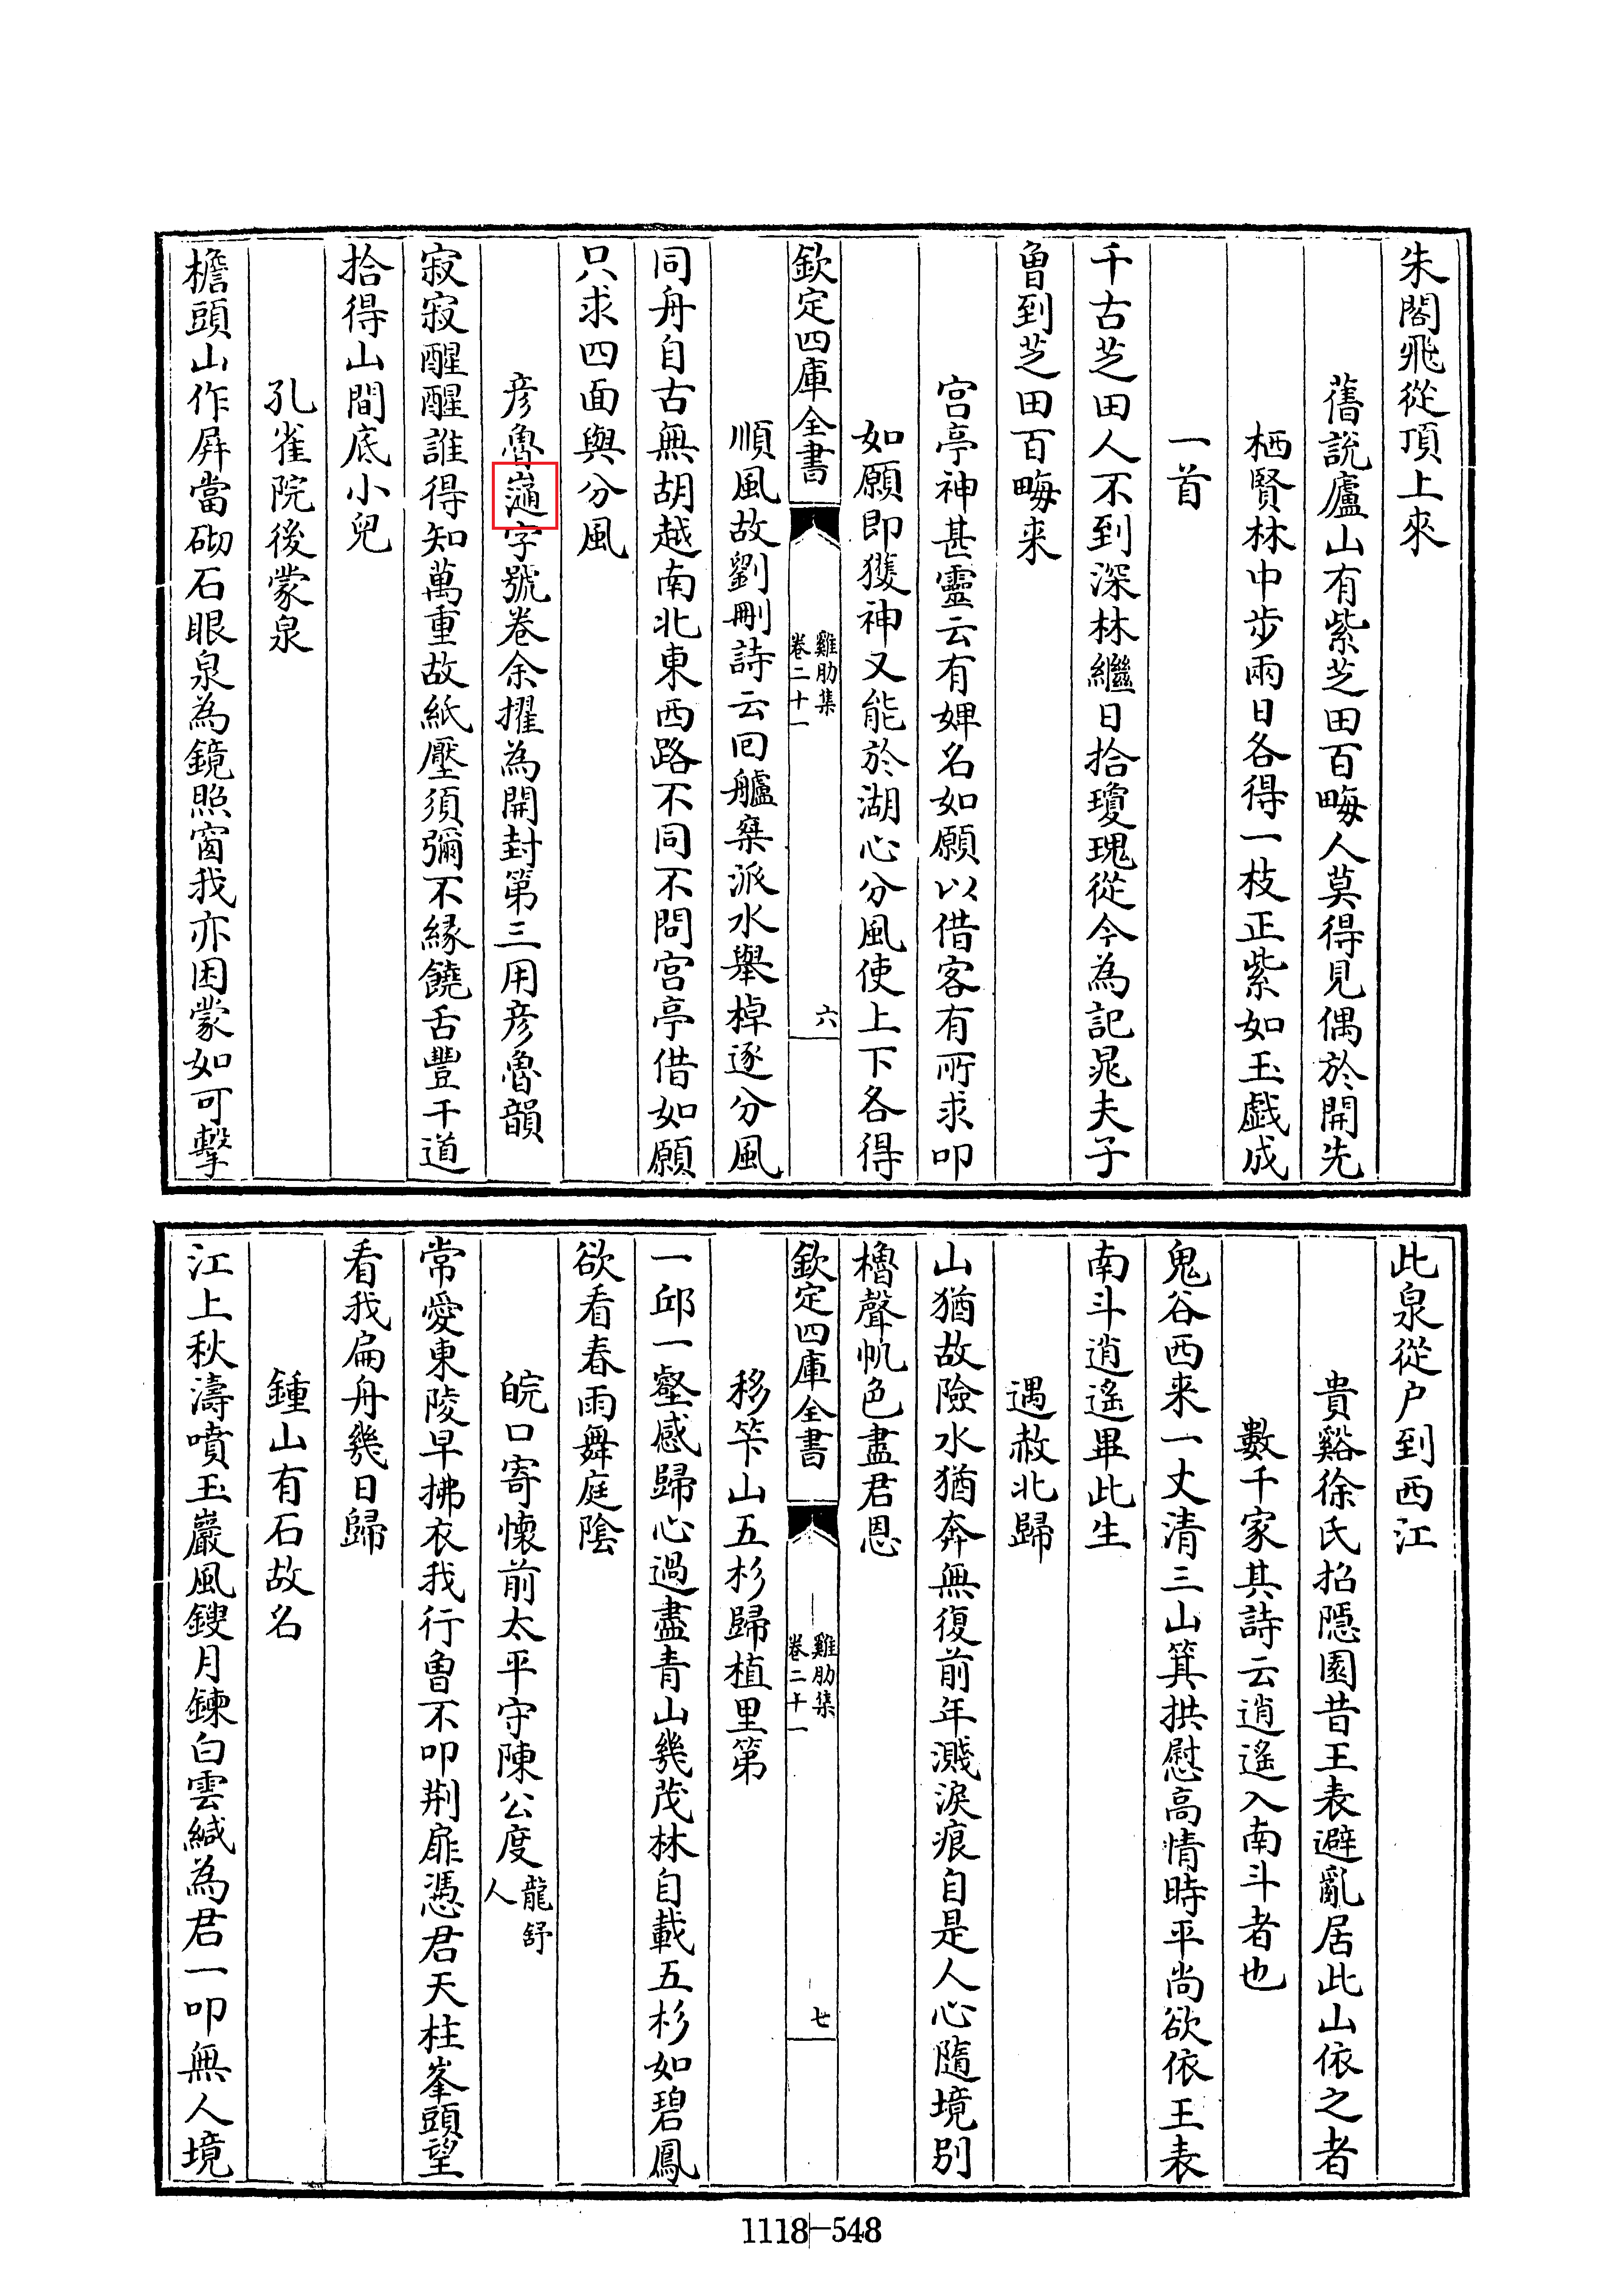 朱閣飛從頂上來
舊說廬山有紫芝田百畮人莫得見偶於開先
栖賢林中步兩日各得一枝正紫如玉戯成
一首
千古芝田人不到深林繼日拾瓊瑰從今為記晁夫子
曽到芝田百畮来
宫亭神甚靈云有婢名如願以借客有所求叩
如願即獲神又能於湖心分風使上下各得
欽定四庫全書
雞肋集
卷二十一
六
順風故劉刪詩云回艫乗派水舉棹逐分風
同舟自古無胡越南北東西路不同不問宫亭借如願
只求四面與分風
彦魯字號卷余擢為開封第三用彦魯韻
寂寂醒醒誰得知萬重故紙壓須彌不縁饒舌豐干道
拾得山間底小兒
孔雀院後蒙泉
檐頭山作屏當砌石眼泉為鏡照窗我亦困蒙如可擊
此泉從户到西江
貴谿徐氏招隱園昔王表避亂居此山依之者
數千家其詩云逍遙入南斗者也
鬼谷西来一丈清三山箕拱慰高情時平尚欲依王表
南斗逍遙畢此生
遇赦北歸
山猶故險水猶奔無復前年濺淚痕自是人心隨境别
櫓聲帆色盡君恩
欽定四庫全書
雞肋集
卷二十一
七
移筰山五杉歸植里第
一邱一壑感歸心過盡青山幾茂林自載五杉如碧鳳
欲看春雨舞庭隂
皖口寄懷前太平守陳公度龍舒人
常愛東陵早拂衣我行曽不叩荆扉憑君天柱峯頭望
看我扁舟幾日歸
鍾山有石故名
江上秋濤噴玉巖風鎪月鍊白雲緘為君一叩無人境
1118-548